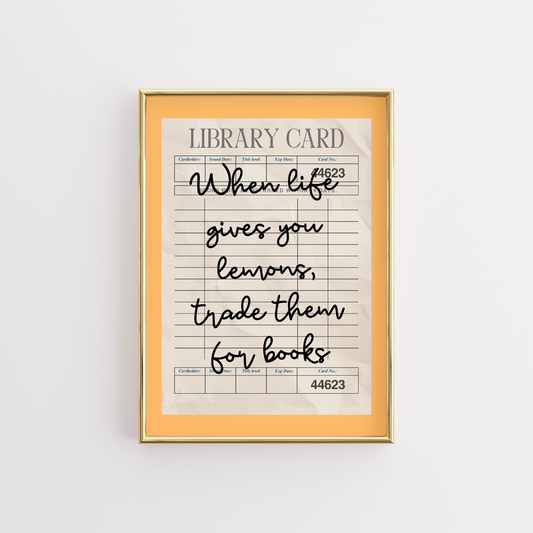 LIBRARY CARD
Cardholder: Issued Date: Title book Exp Date: Card No.:
44623
When life
gives you
lemons,
trade them
for books
Cardholder: Issued Date: Title book Exp Date: Card No.:
44623